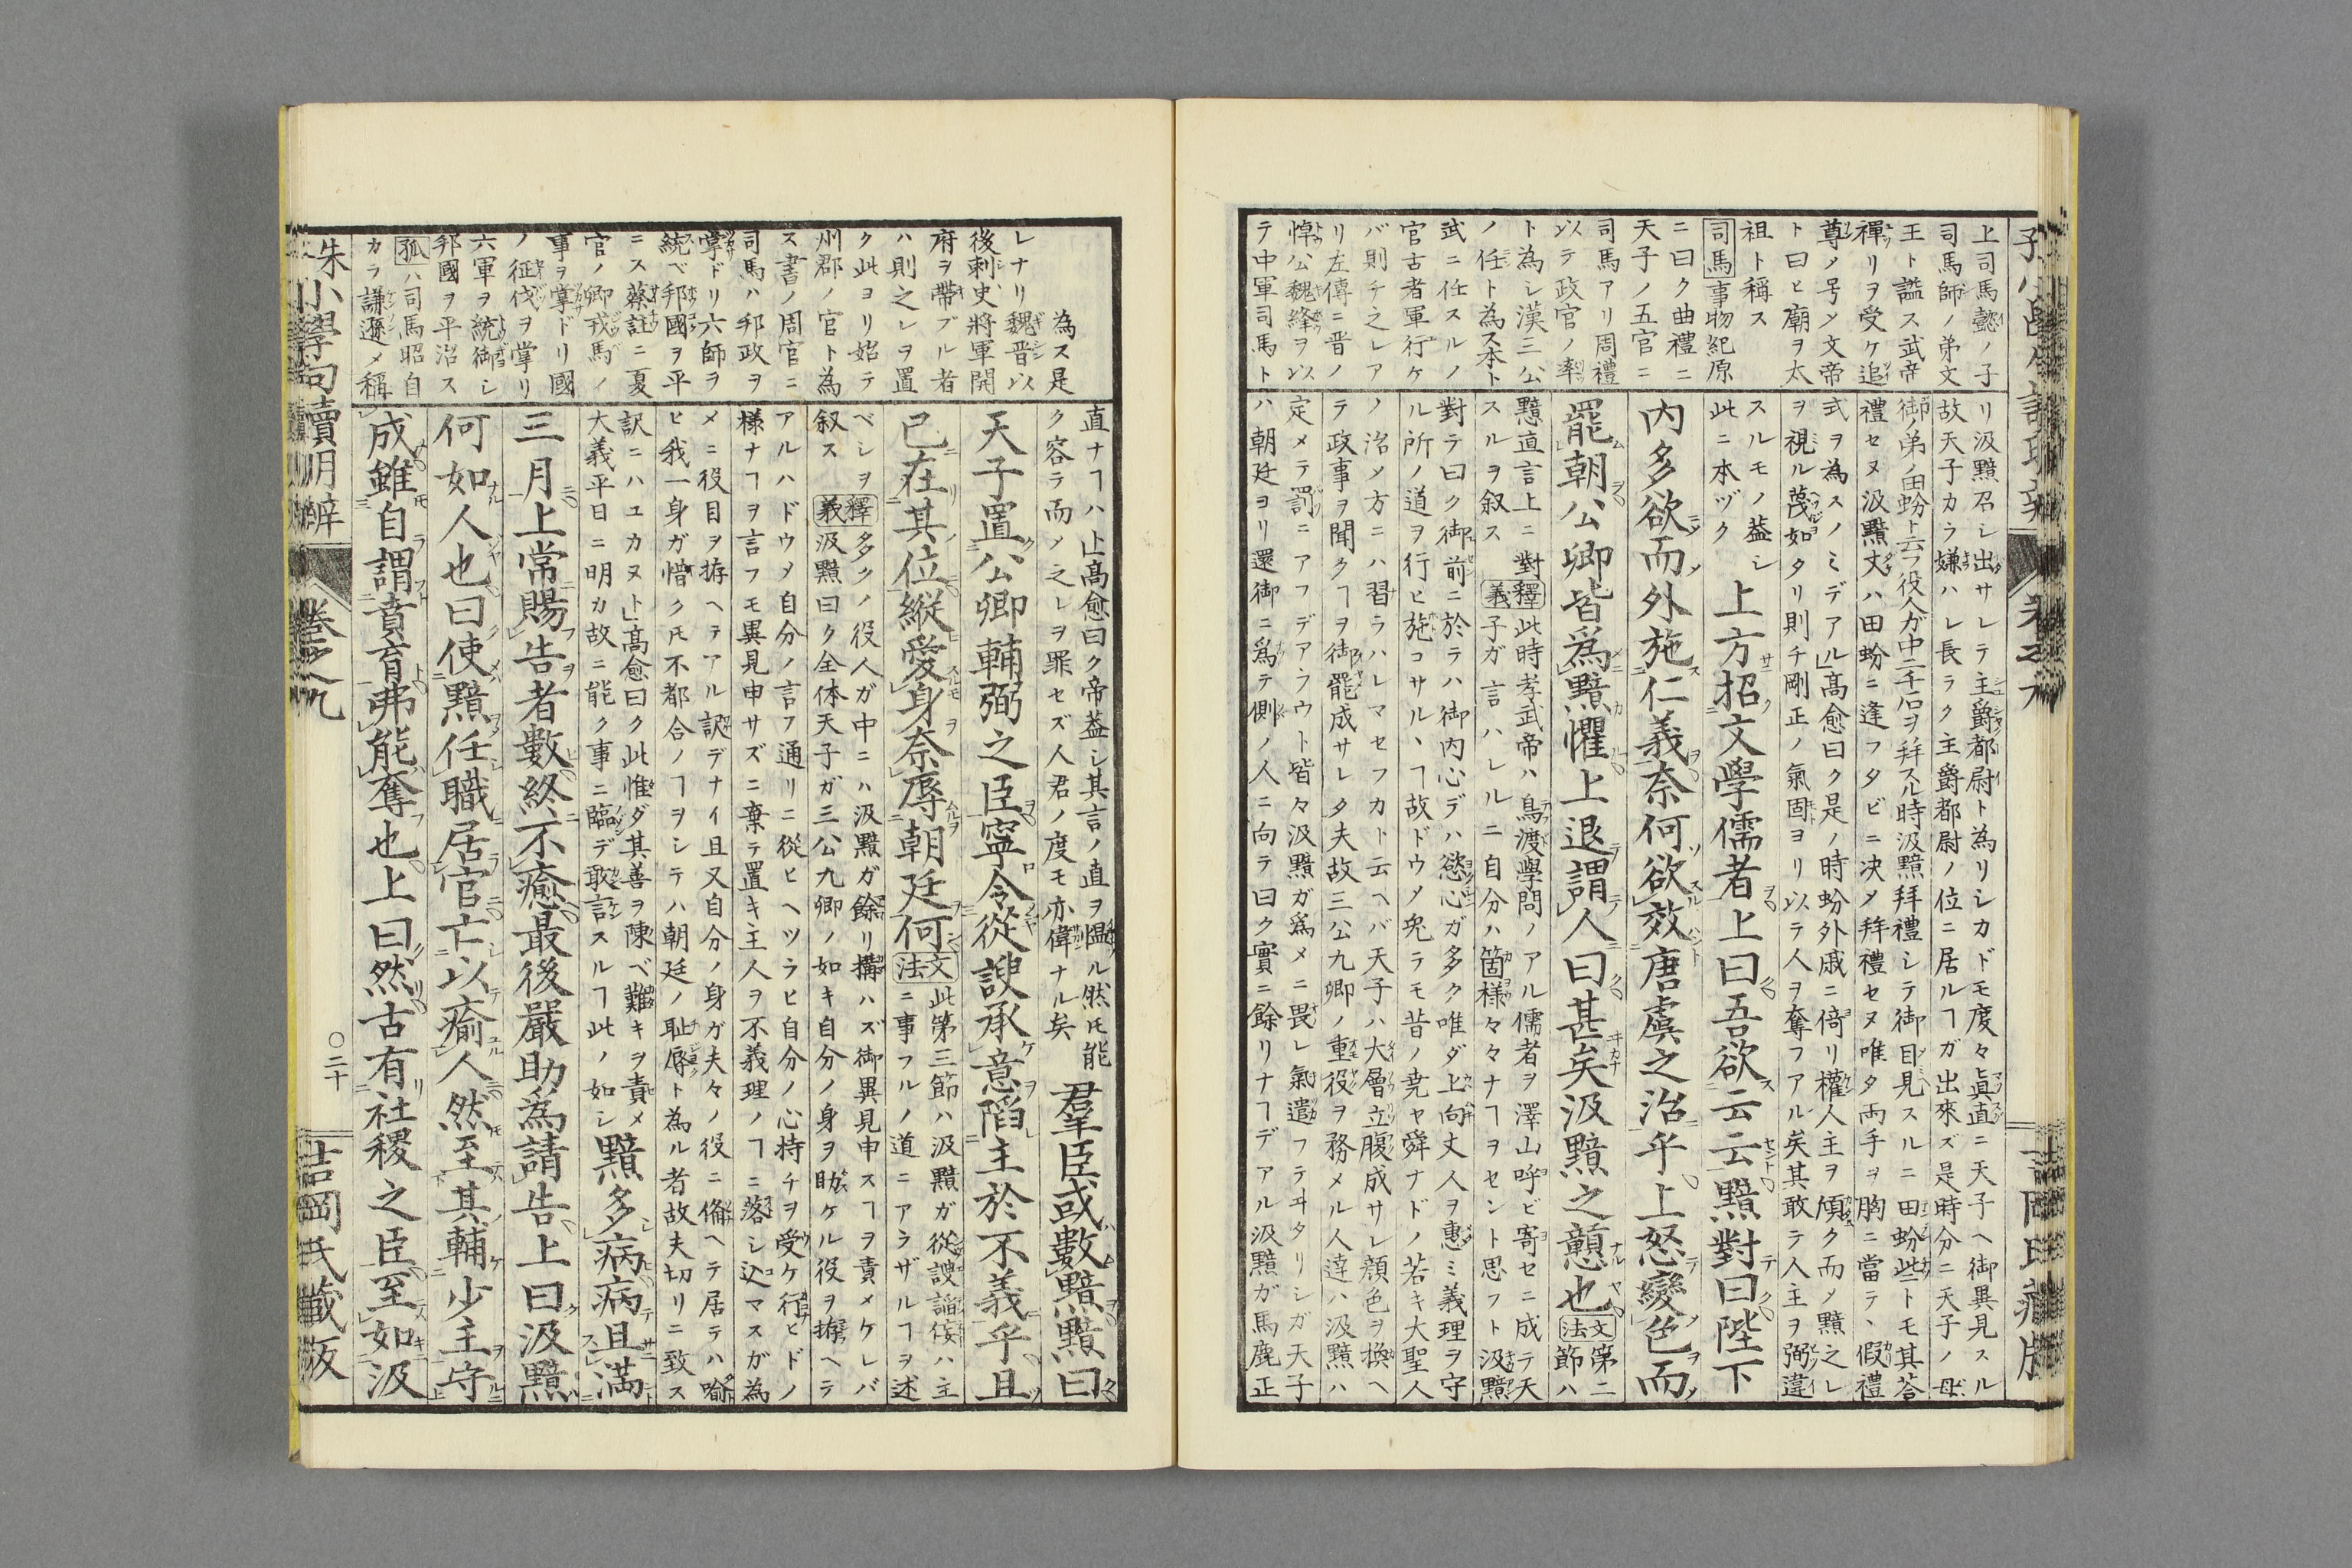 上司馬懿ノ子
司馬師ノ弟文
王ト謚ス武帝
禪リヲ受ケ追
尊ノ号〆文帝
ト曰ヒ廟ヲ太
祖ト稱ス
司馬事物紀原
ニ曰ク曲禮ニ
天子ノ五官ニ
司馬アリ周禮
以テ政官ノ率
ト為シ漢三公
ノ任ト為ス本ト
武ニ任スルノ
官古者軍行ケ
バ則チ之レア
リ左傳ニ晋ノ
悼公魏絳ヲ以
テ中軍司馬ト
リ汲黯召シ出サレテ主爵都尉ト為リシカドモ度々眞直ニ天子ヘ御異見スル
故天子カラ嫌ハレ長ラク主爵都尉ノ位ニ居ルヿガ出來ズ是時分ニ天子ノ母
御ノ弟ノ田蚡ト云フ役人ガ中二千石ヲ拜スル時汲黯拜禮シテ御目見スルニ田蚡些トモ其荅
禮セヌ汲黯丈ハ田蚡ニ逢フタビニ决〆拜禮セヌ唯タ両手ヲ胸ニ當テ、假禮
式ヲ為スノミデアル」高愈曰ク是ノ時蚡外戚ニ倚リ權人主ヲ傾ク而〆黯之レ
ヲ視ル蔑如タリ則チ剛正ノ氣固ヨリ以テ人ヲ奪フアル矣其敢テ人主ヲ弼違
スルモノ蓋シ
此ニ本ヅク
上方招文學儒者上曰吾欲云云黯對曰陛下
内多欲而外施仁義奈何欲效唐虞之治乎上怒變色而
罷朝公卿皆爲黯懼上退謂人曰甚矣汲黯之戇也
文法第二節ハ
黯直言上ニ對
スルヲ叙ス
釋義此時孝武帝ハ鳥渡學問ノアル儒者ヲ澤山呼ビ寄セニ成テ天
子ガ言ハレルニ自分ハ箇様々々ナヿヲセント思フト汲黯
對テ曰ク御前ニ於テハ御内心デハ慾心ガ多ク唯ダ上向丈人ヲ惠ミ義理ヲ守
ル所ノ道ヲ行ヒ施コサルヽヿ故ドウ〆兎ラモ昔ノ尭ヤ舜ナドノ若キ大聖人
ノ治〆方ニハ習ラハレマセフカト云ヘバ天子ハ大層立腹成サレ顔色ヲ換ヘ
テ政事ヲ聞クヿヲ御罷成サレタ夫故三公九卿ノ重役ヲ務メル人達ハ汲黯ハ
定メテ罰ニアフデアラウト皆々汲黯ガ爲メニ畏レ氣遣フテヰタリシガ天子
ハ朝廷ヨリ還御ニ爲テ側ノ人ニ向テ曰ク實ニ餘リナヿデアル汲黯ガ馬鹿正
為ス是
レナリ魏晋以
後刺史將軍開
府ヲ帶ブル者
ハ則之レヲ置
ク此ヨリ始テ
州郡ノ官ト為
ス書ノ周官ニ
司馬ハ邦政ヲ
掌ドリ六師ヲ
統べ邦國ヲ平
ニス蔡註ニ夏
官ノ卿戎馬ノ
事ヲ掌ドリ國
ノ征伐ヲ掌リ
六軍ヲ統御シ
邦國ヲ平治ス
孤ハ司馬昭自
カラ謙遜〆稱
直ナヿハ」高愈曰ク帝蓋シ其言ノ直ヲ慍ル然𪜈能
ク容テ而〆之レヲ罪セズ人君ノ度モ亦偉ナル矣
羣臣或數黯黯曰
天子置公卿輔弼之臣寧令從諛承意䧟主於不義乎且
已在其位縱愛身奈辱朝廷何
文法此第三節ハ汲黯ガ從諛謟侫ハ主
ニ事フルノ道ニアラザルヿヲ述
ベシヲ
叙ス
釋義多クノ役人ガ中ニハ汲黯ガ餘リ搆ハズ御異見申スヿヲ責メケレバ
汲黯曰ク全体天子ガ三公九卿ノ如キ自分ノ身ヲ助ケル役ヲ拵ヘテ
アルハドウ〆自分ノ言フ通リニ從ヒヘツラヒ自分ノ心持チヲ受ケ行ヒドノ
様ナヿヲ言フモ異見申サズニ棄テ置キ主人ヲ不義理ノヿニ落シ込マスガ為
メニ役目ヲ拵ヘテアル訳デナイ且又自分ノ身ガ夫々ノ役ニ俻ヘテ居テハ喩
ヒ我一身ガ惜ク𪜈不都合ノヿヲシテハ朝廷ノ耻辱ト為ル者故夫切リニ致ス
訳ニハユカヌト」高愈曰ク此惟ダ其善ヲ陳ベ難キヲ責メ
大義平日ニ明カ故ニ能ク事ニ臨デ敢言スルヿ此ノ如シ
黯多病病且滿
三月上常賜告者數終不癒最後嚴助為請告上曰汲黯
何如人也曰使黯任職居官亡以瘉人然至其輔少主守
成雖自謂賁育弗能奪也上曰然古有社稷之臣至如汲
朱子小學句讀明辨
卷之九
○二十
吉岡氏藏版